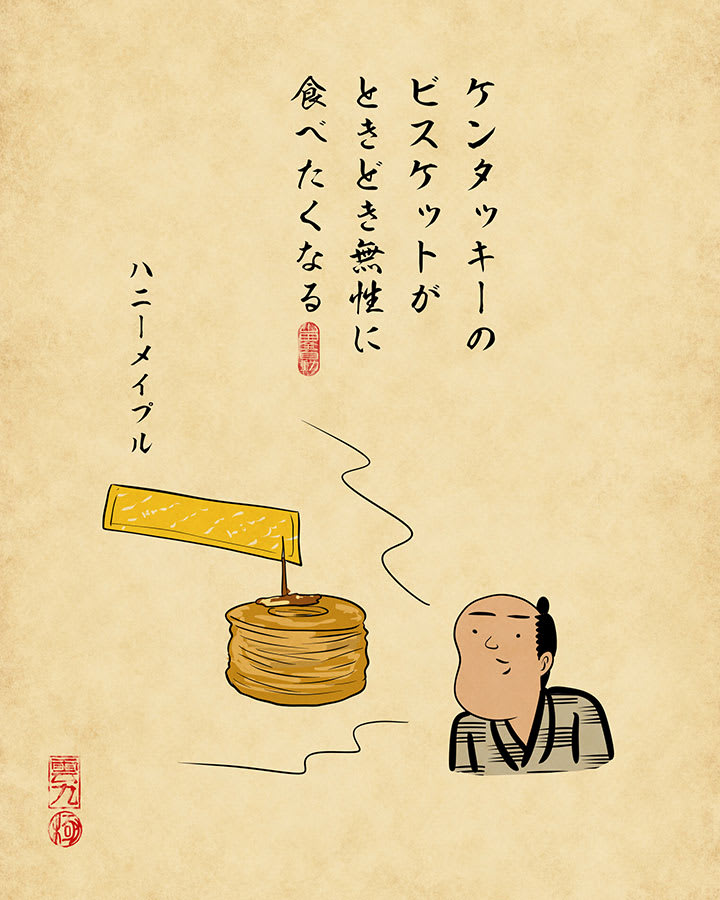 ケンタッキーの
ビスケットが
ときどき無性に
食べたくなる
ハニーメイプル